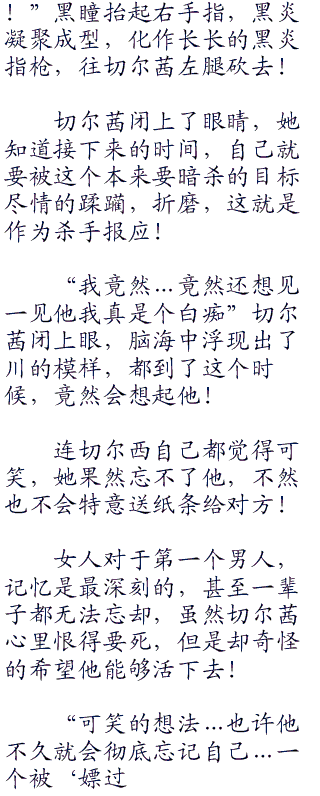 ！”黑瞳抬起右手指，黑炎
凝聚成型，化作长长的黑炎
指枪，往切尔茜左腿砍去！
切尔茜闭上了眼睛，她
知道接下来的时间，自己就
要被这个本来要暗杀的目标
尽情的蹂躏，折磨，这就是
作为杀手报应！
“我竟然…竟然还想见
一见他我真是个白痴”切尔
茜闭上眼，脑海中浮现出了
川的模样，都到了这个时
候，竟然会想起他！
连切尔西自己都觉得可
笑，她果然忘不了他，不然
也不会特意送纸条给对方！
女人对于第一个男人，
记忆是最深刻的，甚至一辈
子都无法忘却，虽然切尔茜
心里恨得要死，但是却奇怪
的希望他能够活下去！
“可笑的想法…也许他
不久就会彻底忘记自己…一
个被‘嫖过